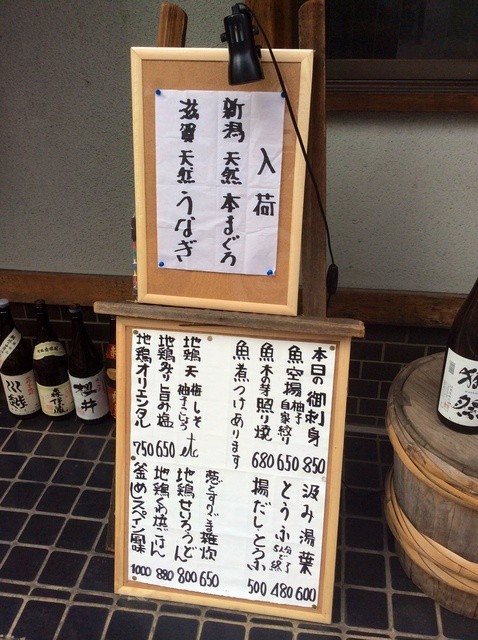 入荷
新潟 天然 本まぐろ
滋賀 天然 うなぎ
本日の御刺身 850
魚空揚 柚子 自家絞り 650
魚木の芽照り焼 680
魚煮つけあります
地鶏天 梅しそ 柚子こしょう etc
地鶏祭り旨み塩 650
地鶏オリエンタル 750
汲み湯葉 600
とうふ 480
揚だしとうふ 500
葱とすぐき雑炊 650
地鶏せいろうどん 800
地鶏くわ焼ごはん 880
釜めスペイン風味 1000
森伊蔵
櫻井
獺祭